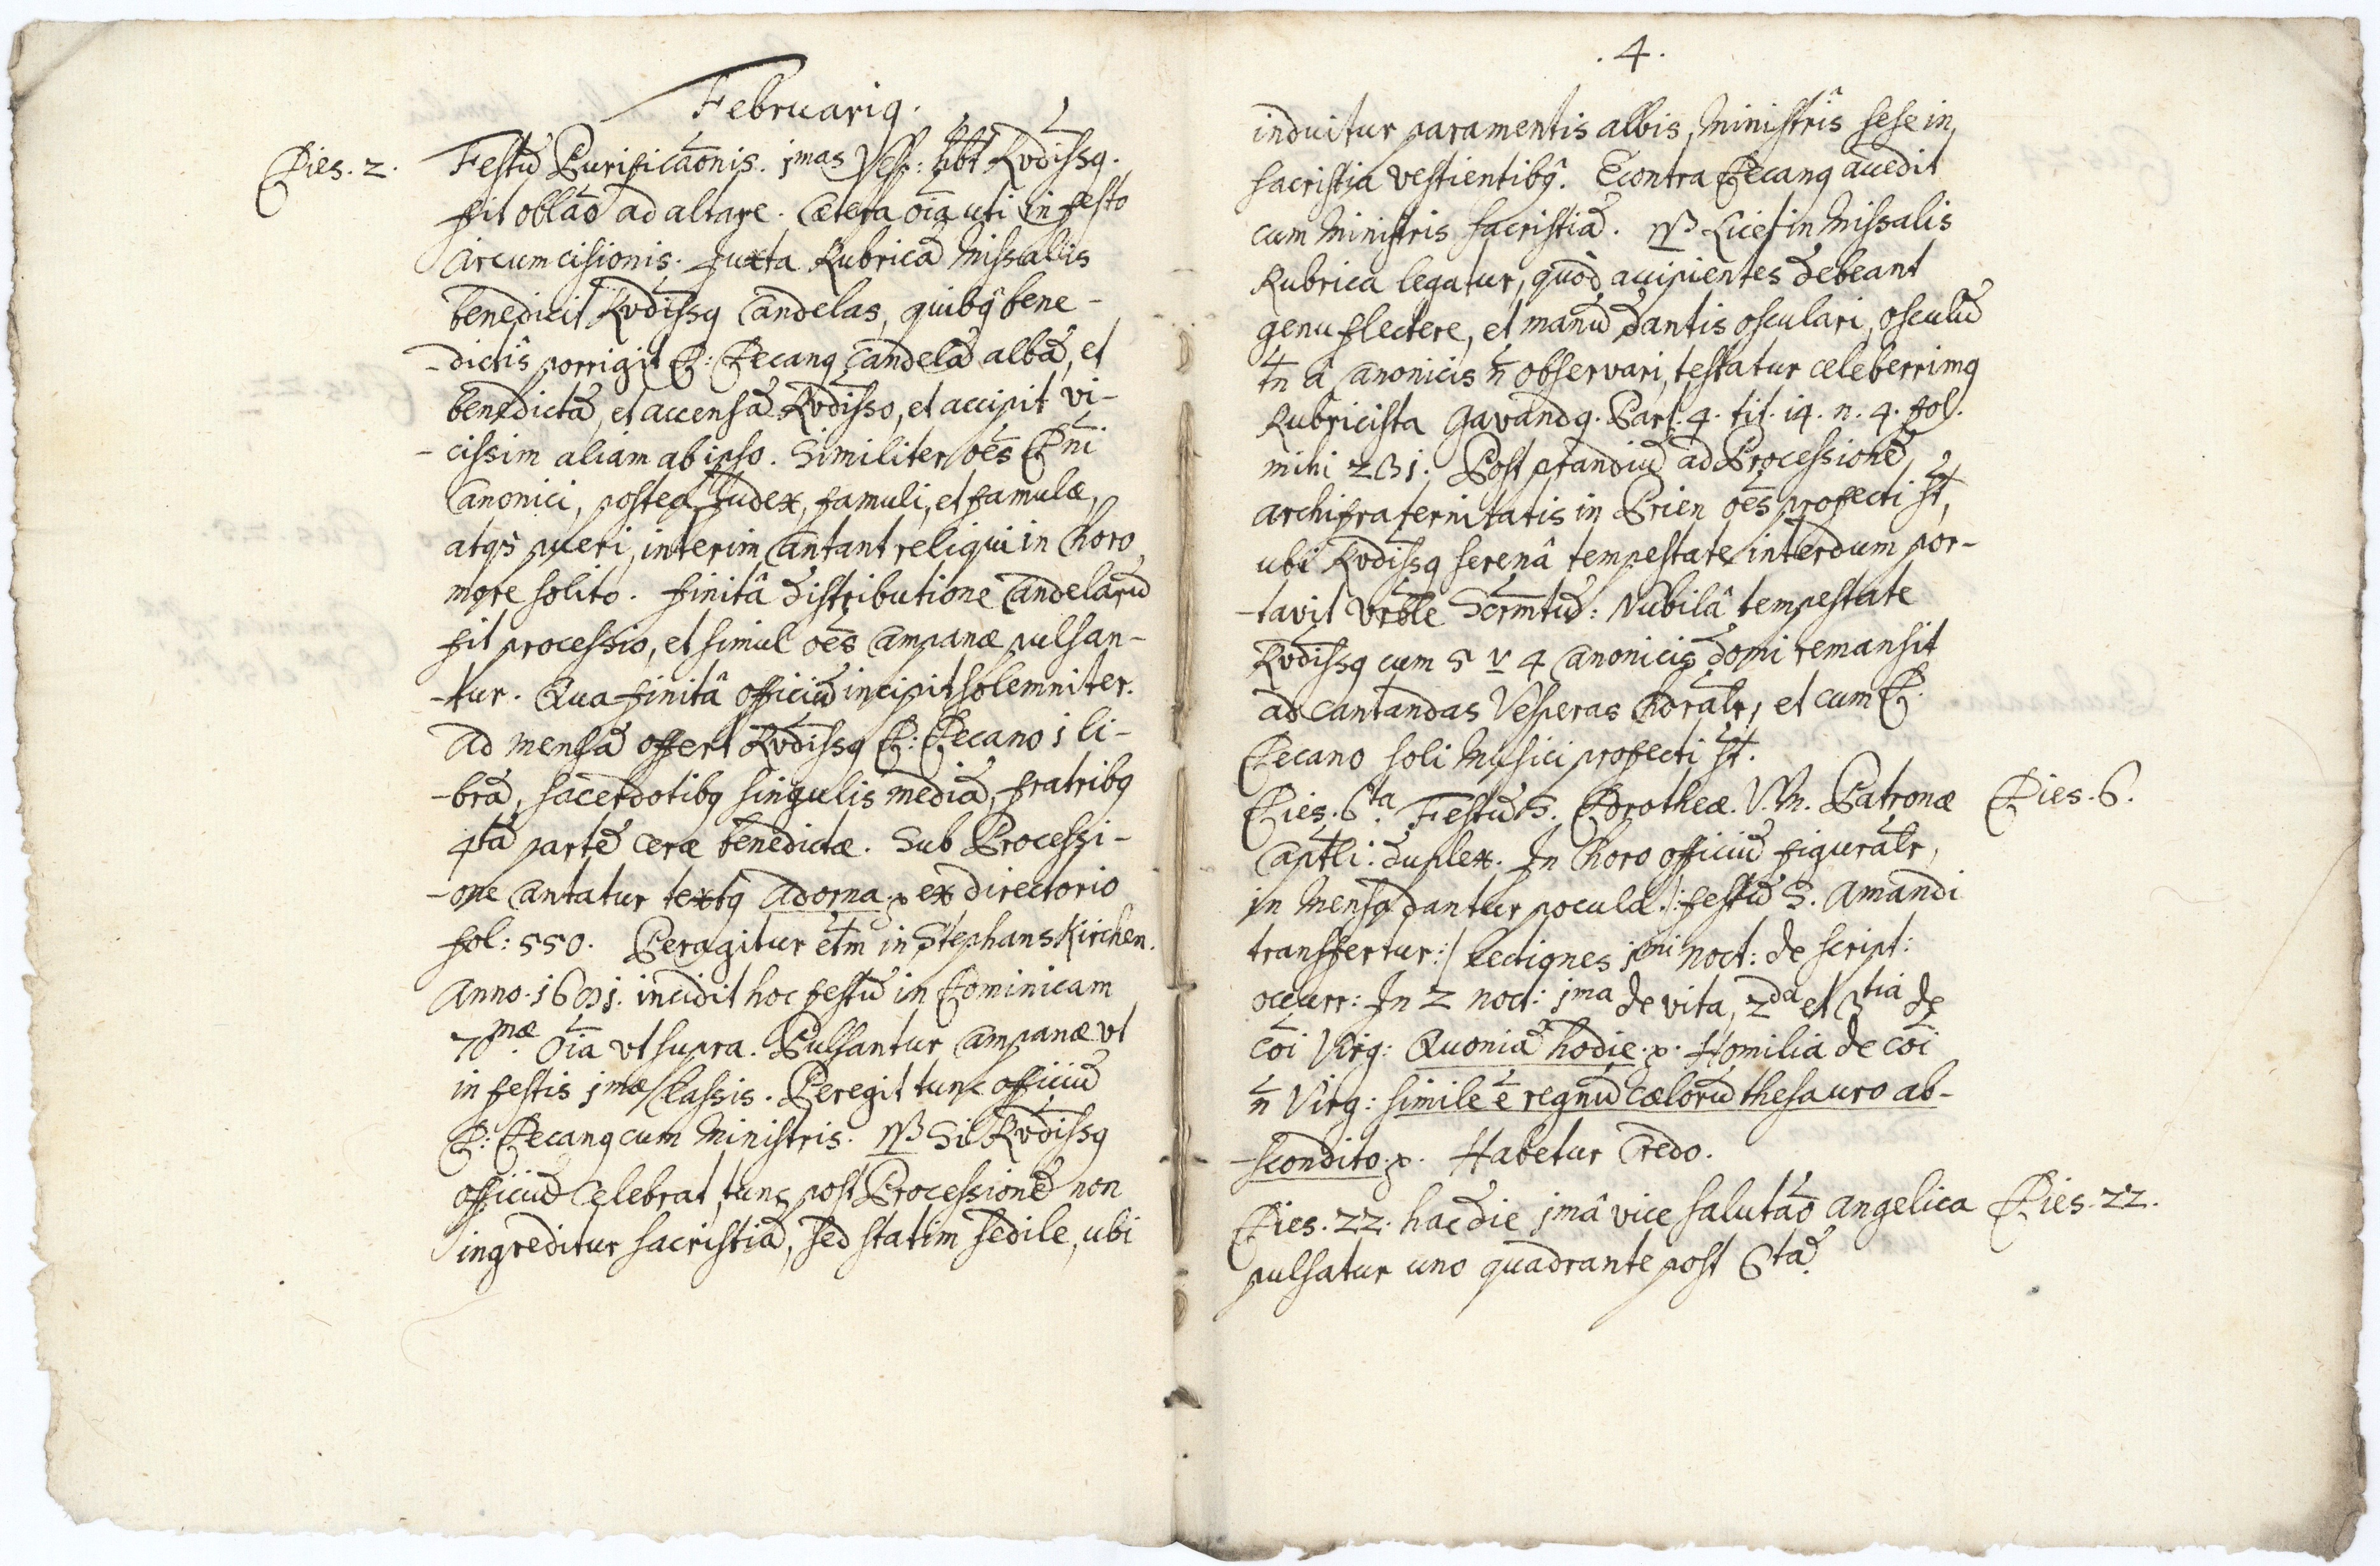 Februariꝯ.
Dies. 2.
Festū Purificãonis. jmas Vesp: hbt Rvdissꝯ.
fit oblãõ ad altare. Cætera õia uti in festo
Circumcisionis. Juxta Rubricā Missalis
benedicit Rvdissꝯ Candelas, quibꝯ bene-
-dictis porrigit D: Decanꝯ Candelā albā, et
benedictā, et accensā Rvdisso, et accipit vi-
-cissim aliam ab ipso. Similiter oēs Dni
Canonici, postea Judex, famuli, et famulæ,
atqꝫ pueri, interim Cantant reliqui in Choro
more solito. finitâ distributione Candelarū
fit processio, et simul oēs Campanæ pulsan-
-tur. Qua finitâ officiū incipit solemniter.
Ad mensā offert Rvdissꝯ D: Decano j li-
-brā, sacerdotibꝯ singulis mediā, fratribꝯ
4tā partē ceræ benedictæ. Sub Processi-
-one Cantatur textꝯ Adorna .p. ex directorio
fol: 550. Peragitur etm in Stephanskirchen.
Anno. 1631. incidit hoc festū in Dominicam
70mæ. Õia vt supra. Pulsantur Campanæ vt
in festis jmæ Classis. Peregit tunc officiū
D: Decanꝯ cum Ministris. NB Si Rvdissꝯ
officiū Celebrat, tunc post Processionē non
ingreditur sacristiā, sed statim sedile, ubi
. 4 .
induitur paramentis albis, Ministris sese in
sacristia vestientibꝯ. Econtra Decanꝯ accedit
cum Ministris sacristiā. NB Licet in Missalis
Rubrica legatur, quòd accipientes debeant
genuflectere, et manū dantis osculari, osculū
tn â Canonicis ñ observari, testatur celeberrimꝯ
Rubricista Gavandꝯ. Part. 4. tit. 14. n. 4. fol.
mihi 231. Post prandiū ad Processionē
archifraternitatis in Prien oēs profecti st,
ubi Rvdissꝯ serenâ tempestate interdum por-
-tavit Vrble Scrmtū: Nubilâ tempestate
Rvdissꝯ cum 5 v 4 Canonicis domi remansit
ad cantandas Vesperas Choralr, et cum D.
Decano soli Musici profecti st.
Dies. 6ta. Festū S. Dorotheæ. V. M. Patronæ
Dies. 6.
Captli: duplex. In Choro officiū figuralr,
in Mensa dantur pocula /: festū S. Amandi
transffertur :/ Lectiones jmi noct: de script:
occurr: In 2 noct: jma de vita, 2da et 3tia de
cõi Virg: Quoniā hodie .p. Homilia de cõi
ñ Virg: simile ẽ regnū cælorū thesauro ab-
-scondito .p. Habetur Credo.
Dies. 22. hac die jmâ vice salutãõ Angelica
Dies. 22.
pulsatur uno quadrante post 6tā.